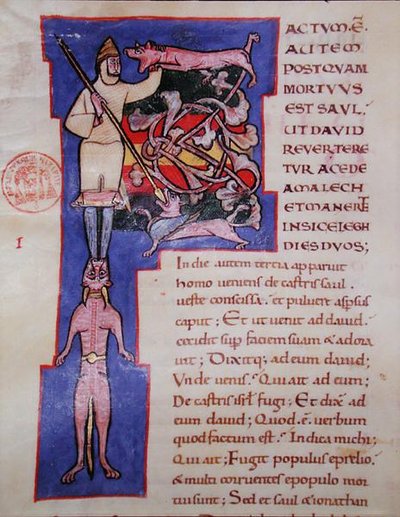 ACTUM; Ē
AUTEM
POSTQUAM
MORTUUS
EST SAUL,
UT DAVID
REVERTERE
TUR A CEDE
AMALECH
ET MANERET
IN SICELEGH
DIES DUOS;
I
In die autem tertia apparuit
homo veniens de castris saul.
veste conscissa. et pulvere aspsus
caput; Et ut venit ad david.
cecidit sup faciem suam & adora
vit; Dixitq; ad eum david;
Unde venis. Qui ait ad eum;
De castris isrl fugi; Et dix ad
eum david; Quod.ē. verbum
quod factum est. Indica michi;
Qui ait; Fugit populus e prelio.
& multi corruentes e populo mor
tui sunt; Sed et saul & ionathan